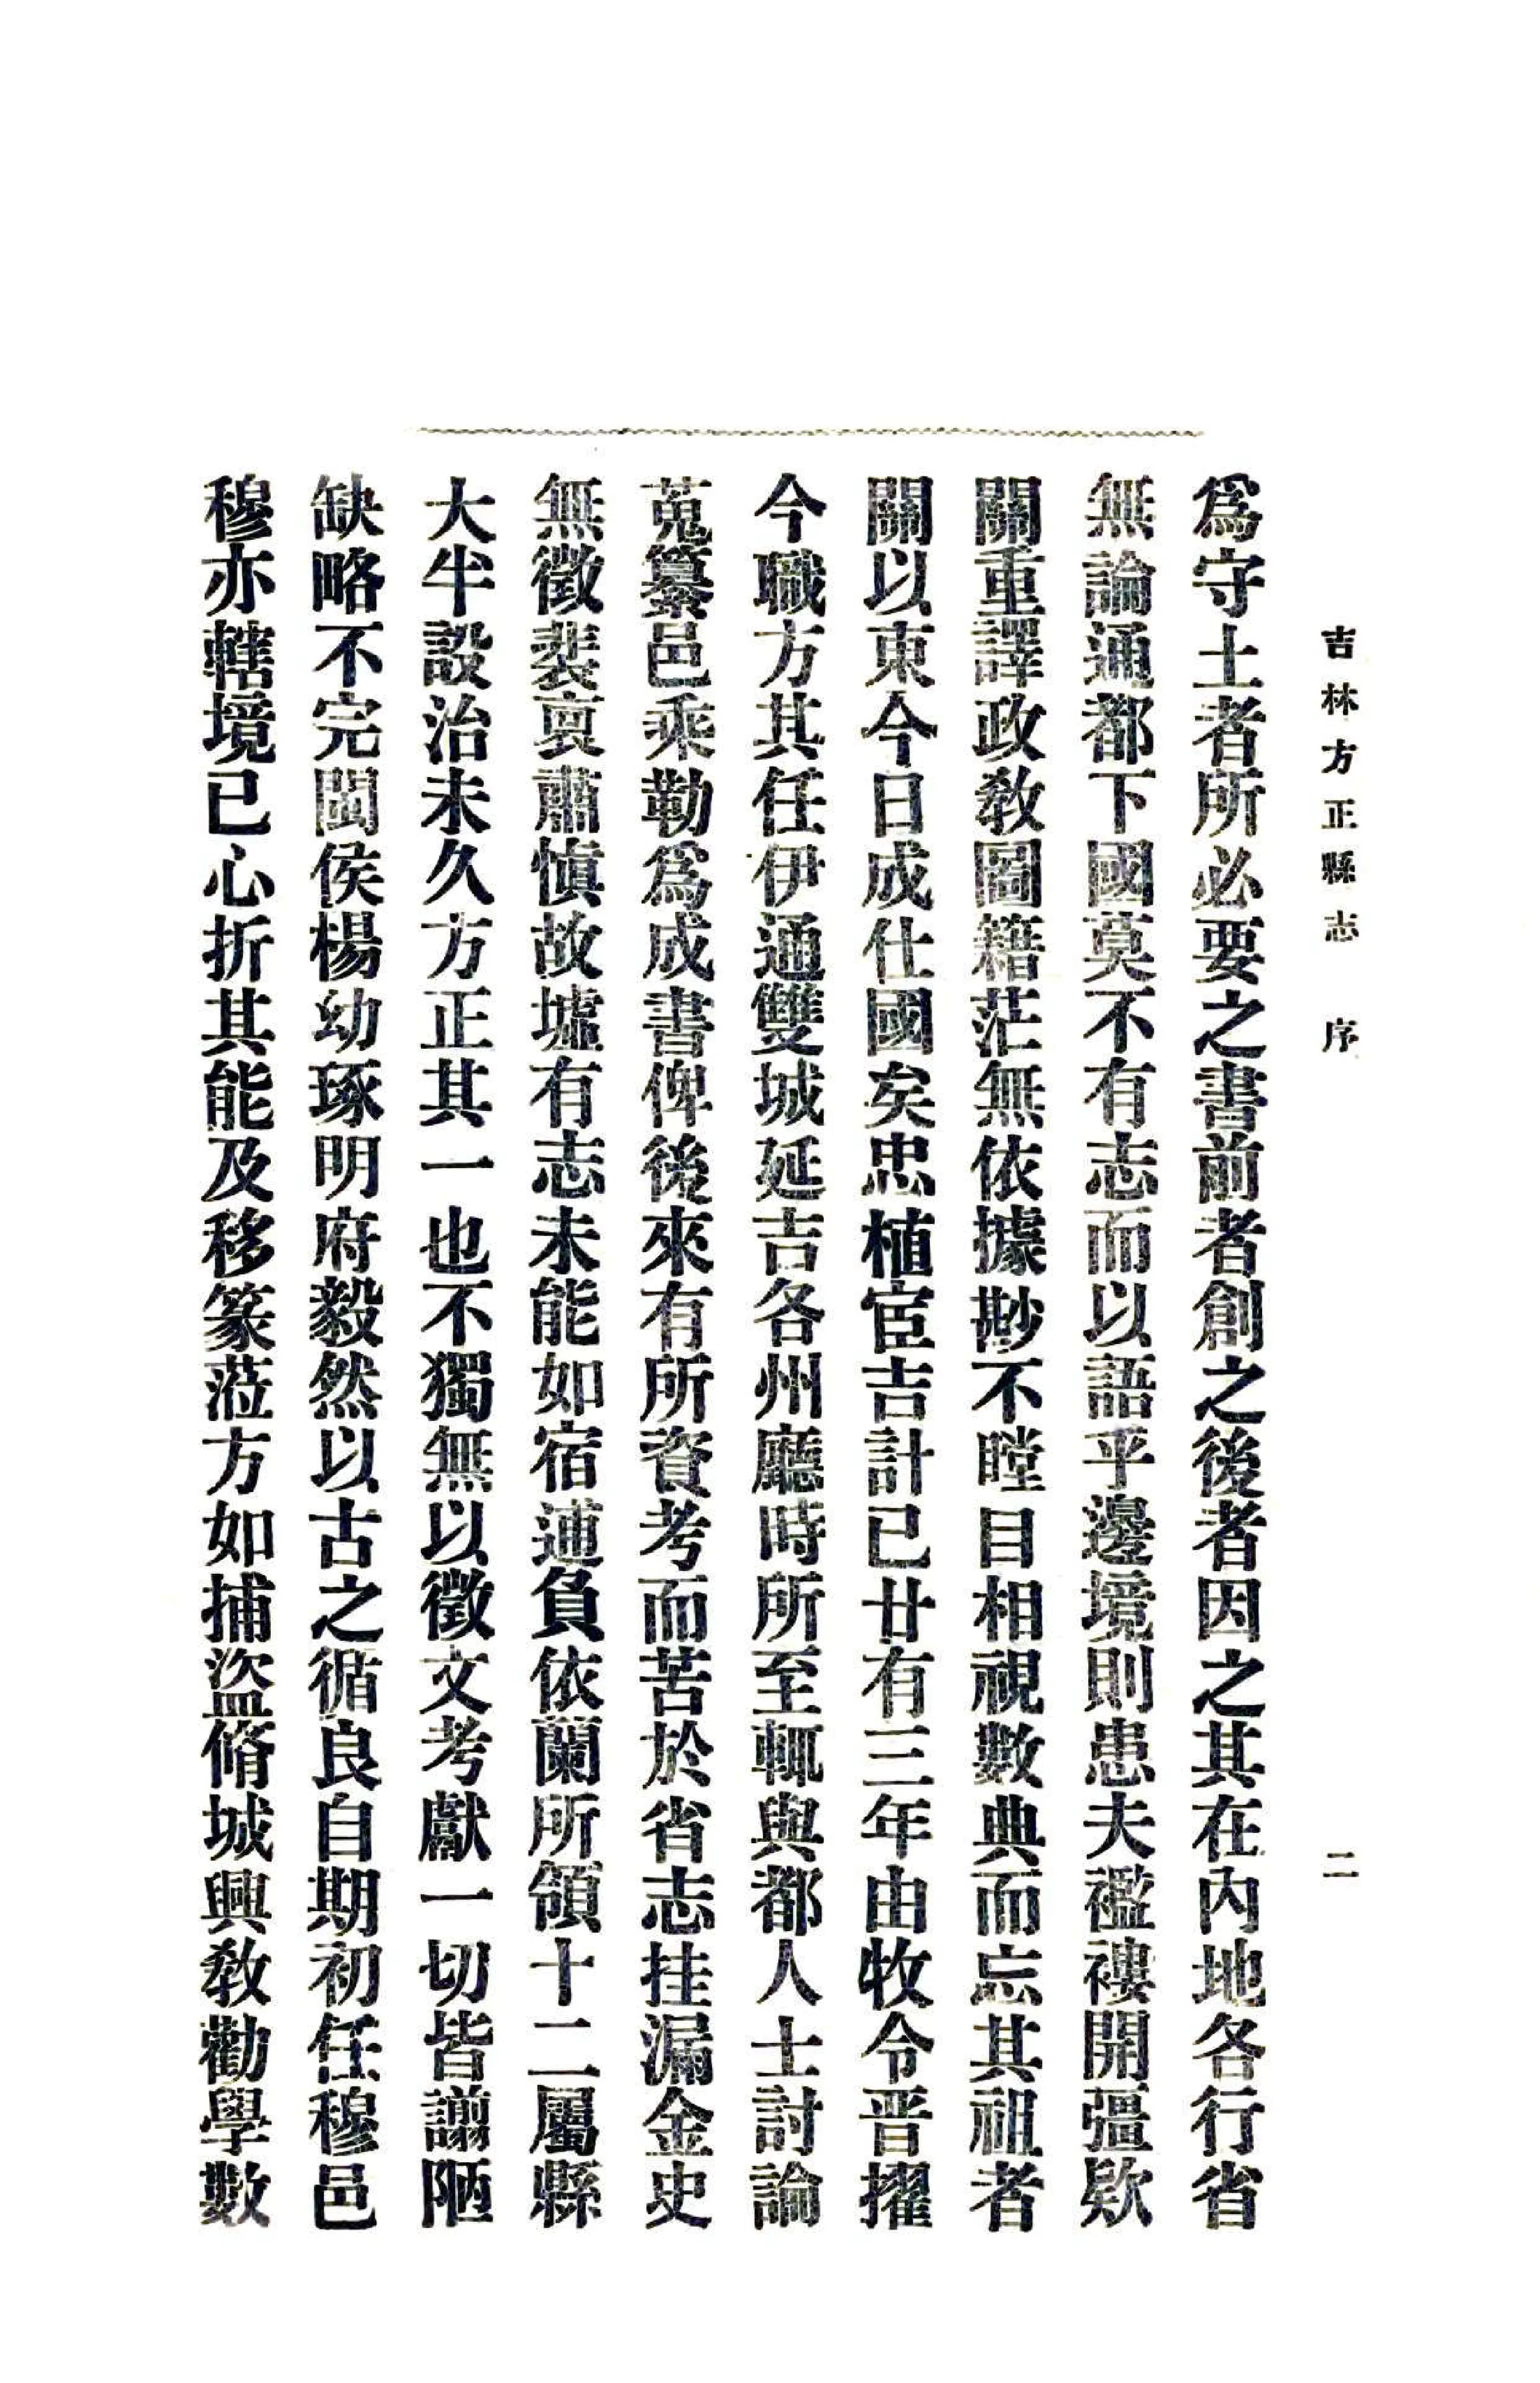 吉林方正縣志　序　二
爲守土者所必要之書前者創之後者因之其在內地各行省
無論通都下國莫不有志而以語乎邊境則患夫襤褸開彊欵
關重譯政敎圖籍茫無依據尠不瞠目相視數典而忘其祖者
關以東今日成仕國矣忠植宦吉計已廿有三年由牧令晋擢
今職方其任伊通雙城延吉各州廳時所至輒與都人士討論
蒐纂邑乘勒爲成書俾後來有所資考而苦於省志挂漏金史
無徵裴裒肅愼故墟有志未能如宿逋負依蘭所領十二屬縣
大半設治未久方正其一也不獨無以徵文考獻一切皆譾陋
缺略不完閩侯楊幼琢明府毅然以古之循良自期初任穆邑
穆亦轄境已心折其能及移篆蒞方如捕盜脩城興敎勸學數